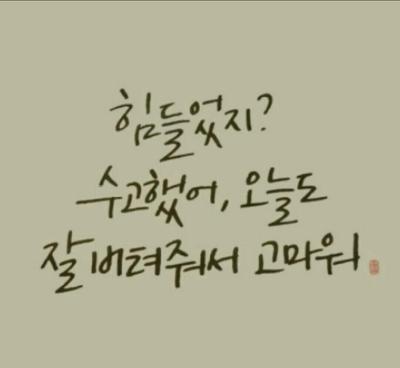 힘들었지?
수고했어, 오늘도
잘 버텨줘서 고마워